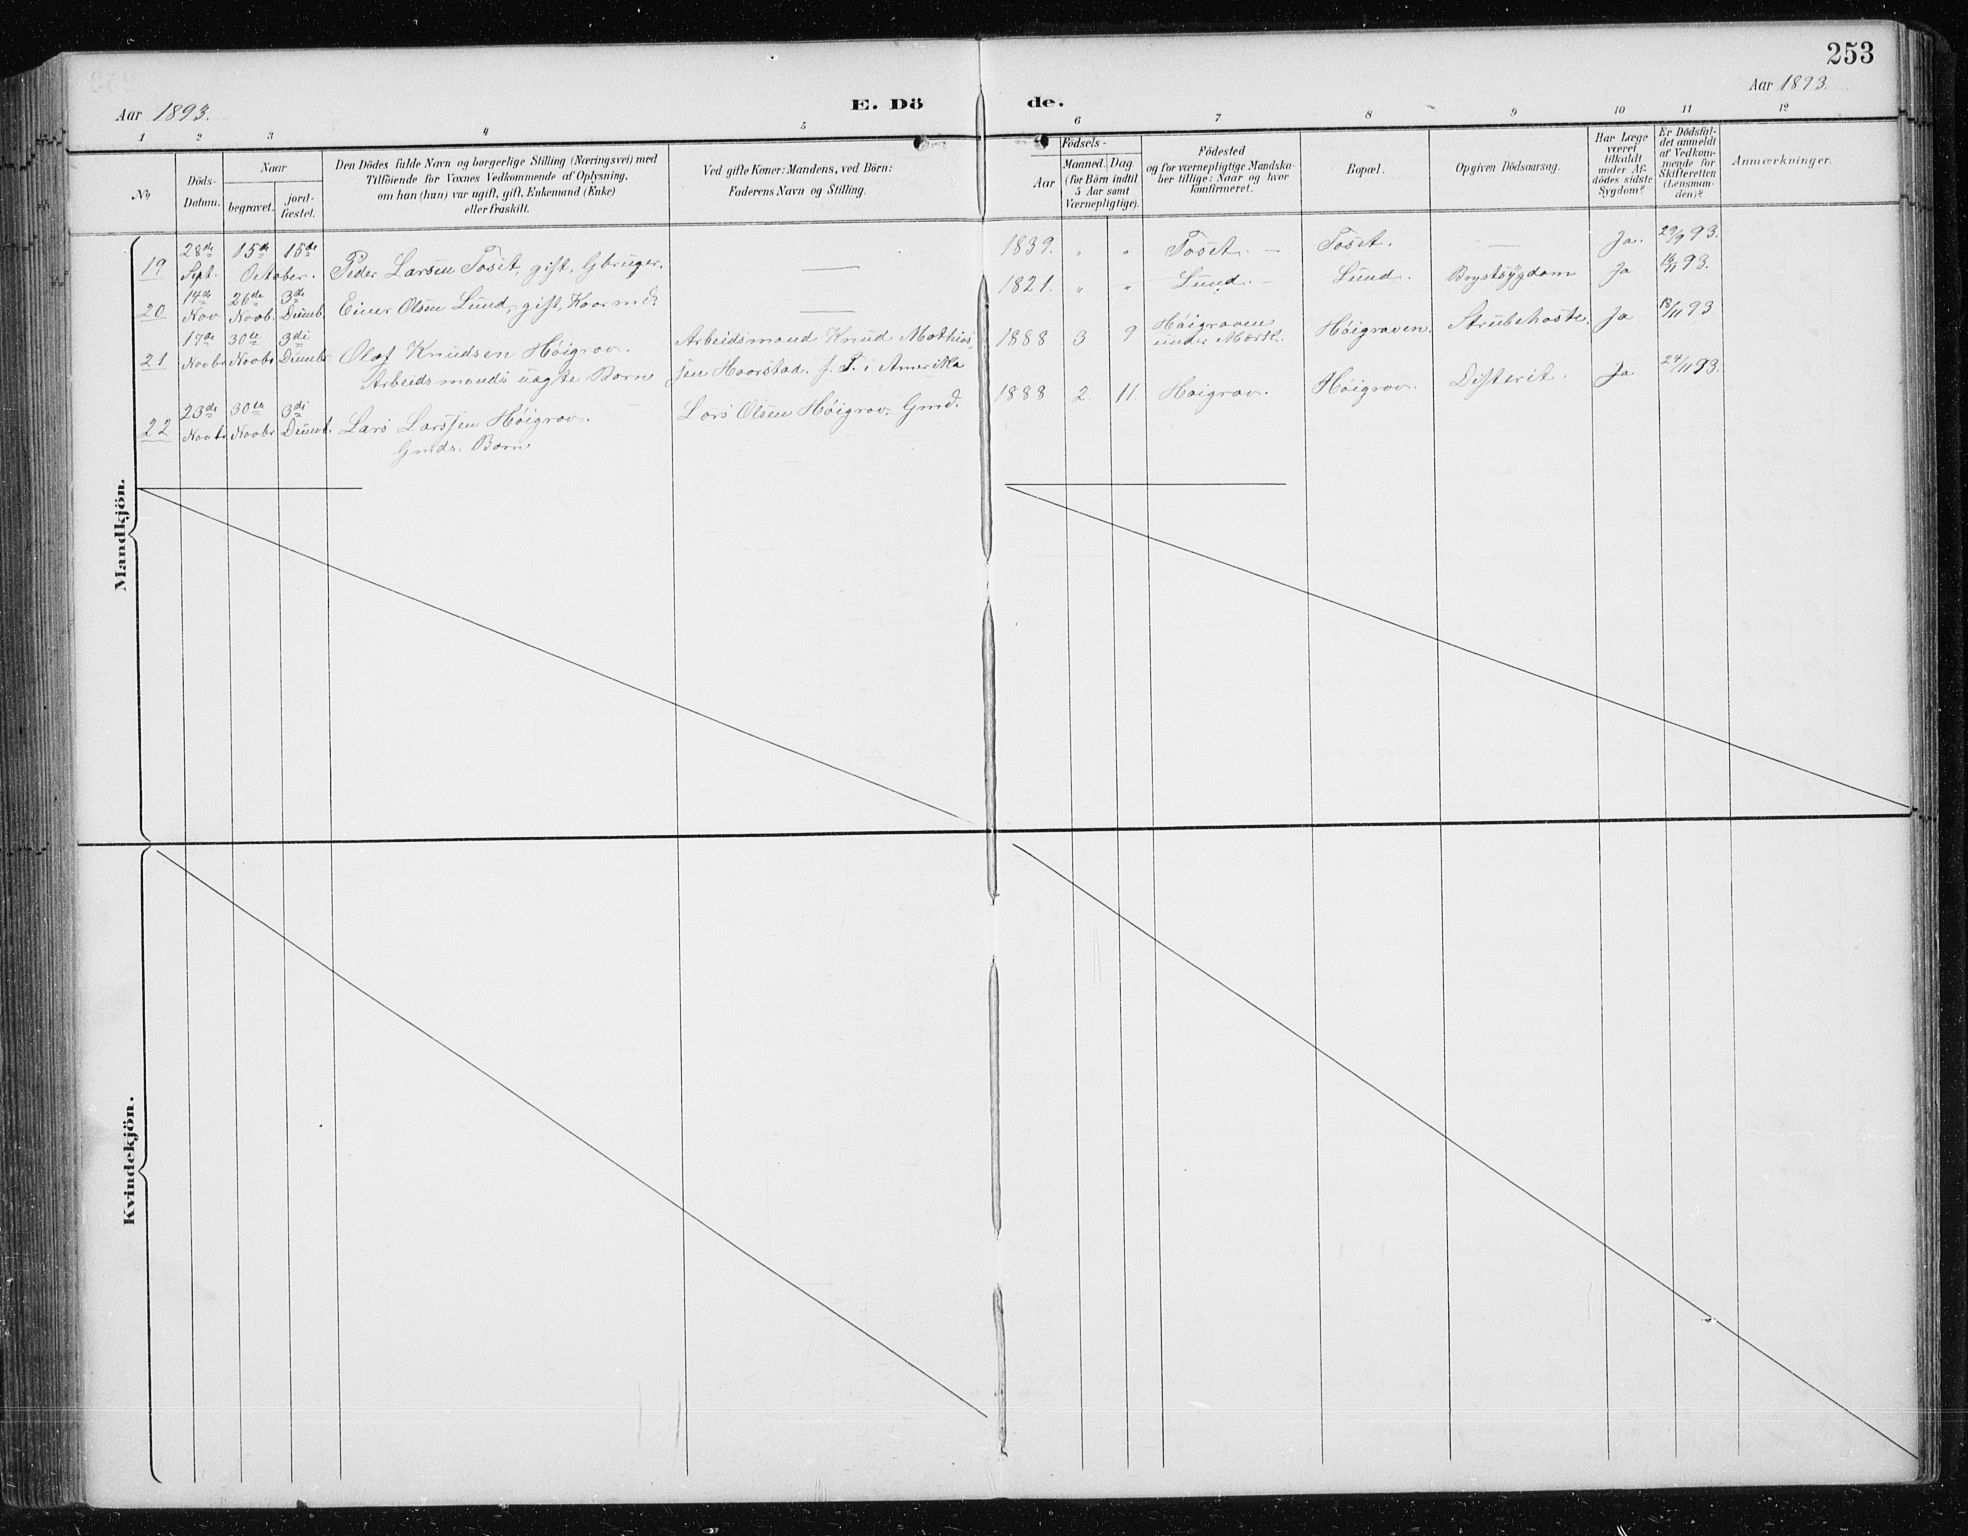 253
Aar 1893.
E. Dö
de.
Aar 1893.
1 2 3 4 5 6 7 8 9 10 11 12
No
Döds-
Datum.
Naar
begravet.
jord-
fæstet.
Den Dödes fulde Navn og borgerlige Stilling (Næringsvei) med
Tilföiende for Voxnes Vedkommende af Oplysning,
om han (hun) var ugift, gift, Enkemand (Enke)
eller fraskilt.
Ved gifte Koner: Mandens, ved Börn:
Faderens Navn og Stilling.
Födsels-
Aar
Maaned. Dag.
(for Börn indtil
5 Aar samt
Værnepligtige).
Födested
og for værnepligtige Mandska-
ber tillige: Naar og hvor
konfirmeret.
Bopæl.
Opgiven Dödsaarsag.
Har Læge
været
tilkaldt
under Af-
dödes sidste
Sygdom?
Er Dödsfal-
det anmeldt
af Vedkom-
mende for
Skifteretten
(Lensman-
den)?
Anmærkninger.
Mandkjön.
19 28de Sept. 15de 15de October. Peder Larsen Foset, gift, Gbruger. — 1839. " " Foset. — Foset. — Ja. 29/9 93.
20 14de Nov 26de Novb. 3de Decemb. Einer Olsen Lund, gift, Kaarmd. — 1821. " " Lund. — Lund. Brystsygdom Ja 93.
21 17de Novbr 30te Novbr 3di Decembr Olaf Knudsen Höigrav. Arbeidsmand Knud Mathias- 1888 3 9 Höigraven Höigraven. Strubehoste. Ja 18/11 93
Arbeidsmands uægte Barn sen Haarstad. f. T. i Amerika under Mörk.
22 23de Novbr 30te Novbr 3di Decemb. Lars Larssen Höigrav. — Lars Olsen Höigrav. Gmd. 1888 2. 11. Höigrav. Höigrav. Difterit. Ja 24/11 93.
Gmds. Barn
Kvindekjön.